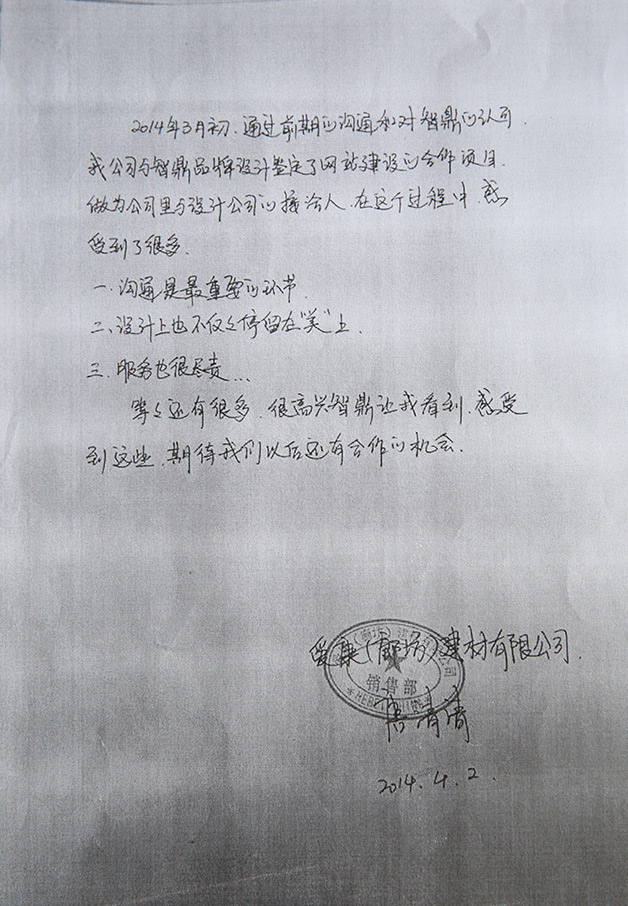 2014年3月初，通过前期的沟通和对智鼎的认可，
我公司与智鼎品牌设计签定了网站建设的合作项目，
做为公司里与设计公司的接洽人，在这个过程中，感
受到了很多.
一.沟通是最重要的环节.
二、设计上也不仅仅停留在“美”上.
三.服务也很尽责...
等等还有很多，很高兴智鼎让我看到、感受
到这些，期待我们以后还有合作的机会.
(廊坊)建材有限公司.
销售部
HEBEI
2014.4.2.